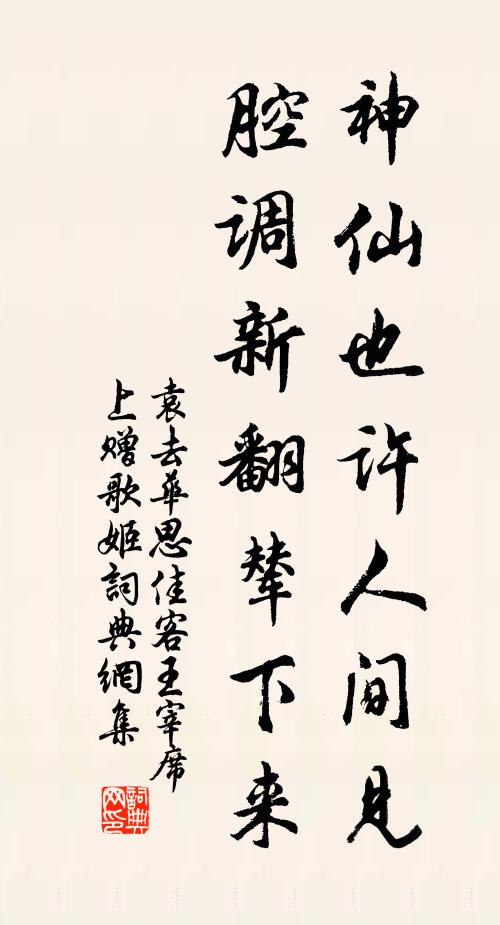 神仙也许人间见
腔调新翻辇下来
袁去華思佳客王宰席
上赠歌姬詞典網集
詞典网印